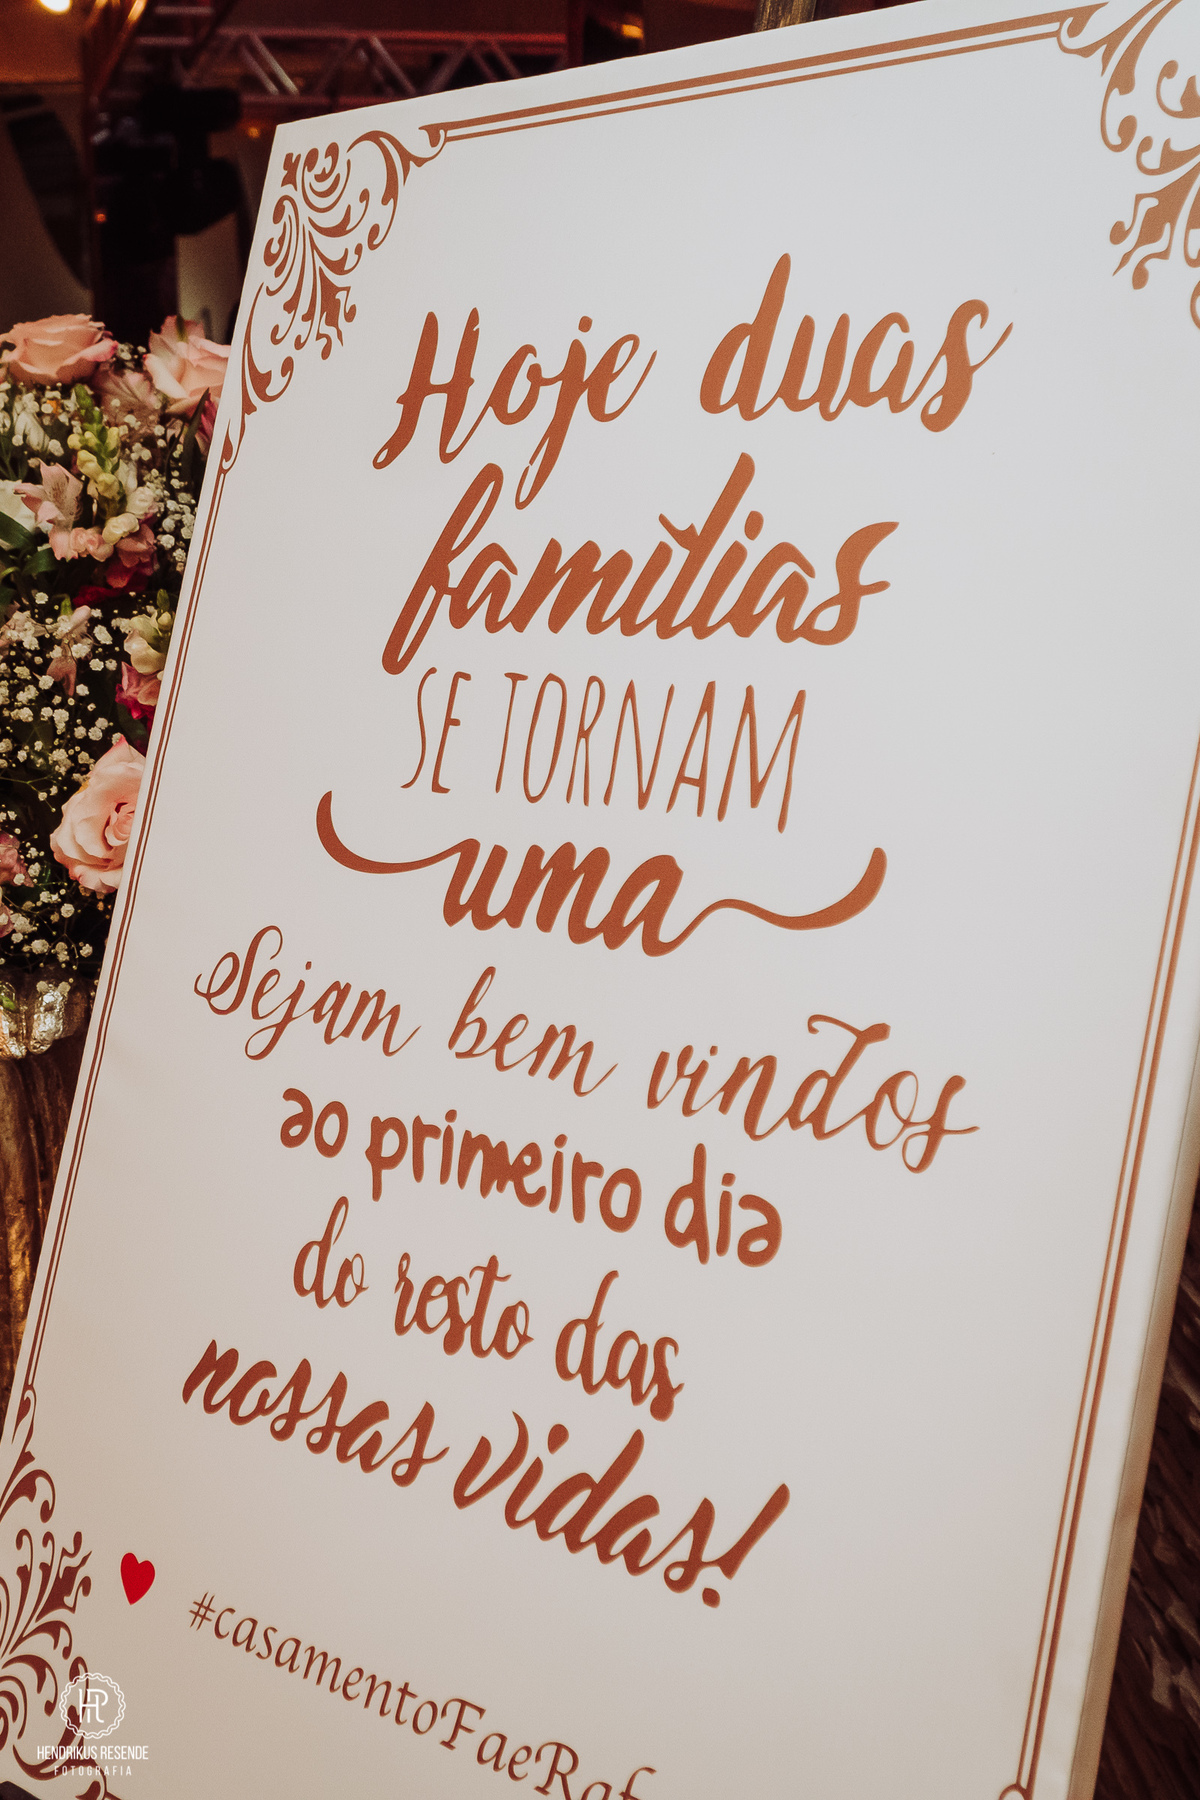 Hoje duas
famílias
SE TORNAM
uma
Sejam bem vindos
ao primeiro dia
do resto das
nossas vidas!
#casamentoFaeRaf
HR
HENDRIKUS RESENDE
FOTOGRAFIA